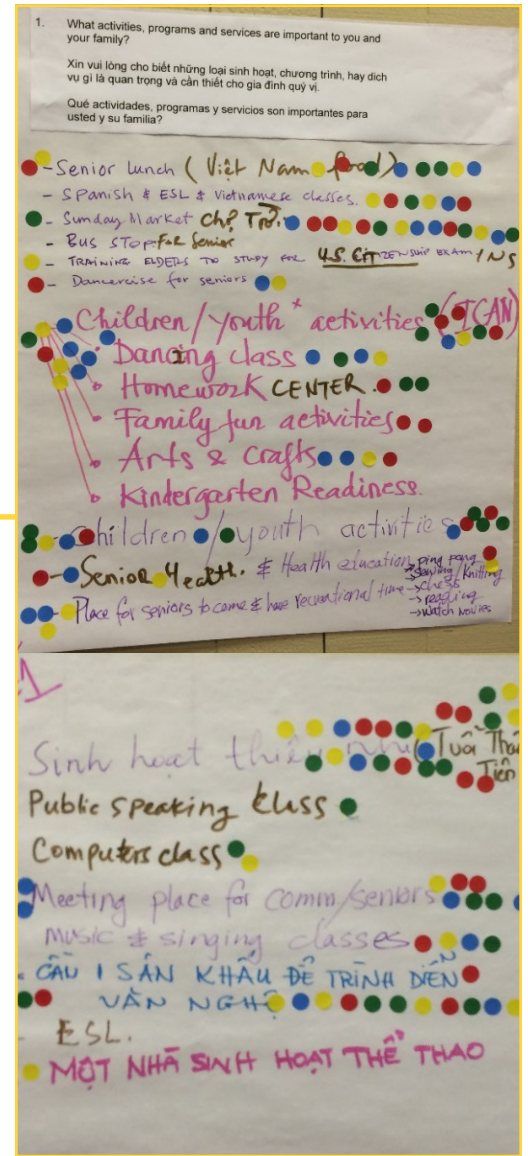 1. What activities, programs and services are important to you and
your family?
Xin vui lòng cho biết những loại sinh hoạt, chương trình, hay dich
vụ gì là quan trọng và cần thiết cho gia đình quý vị.
Qué actividades, programas y servicios son importantes para
usted y su familia?
- Senior lunch (Việt Nam food)
- Spanish & ESL & Vietnamese classes.
- Sunday Market Chợ Trời
- BUS STOP FOR Senior
- TRAINING ELDERS TO STUDY FOR U.S. CITIZENSHIP EXAM / INS
- Dancercise for seniors
Children/youth* activities (ICAN)
Dancing class
Homework CENTER.
Family fun activities
Arts & crafts
Kindergarten Readiness.
- Children/youth activities
- Senior Health. & Health education → ping pong
→ sewing/Knitting
- Place for seniors to come & have recreational time → chess
→ reading
→ watch movies
Sinh hoạt thiếu nhi (Tuổi Thơ
Tiên
Public speaking class
Computers class
Meeting place for comm/seniors
music & singing classes
CẦU 1 SÂN KHẤU ĐỂ TRÌNH DIỄN
VĂN NGHỆ
- ESL.
MỘT NHÀ SINH HOẠT THỂ THAO